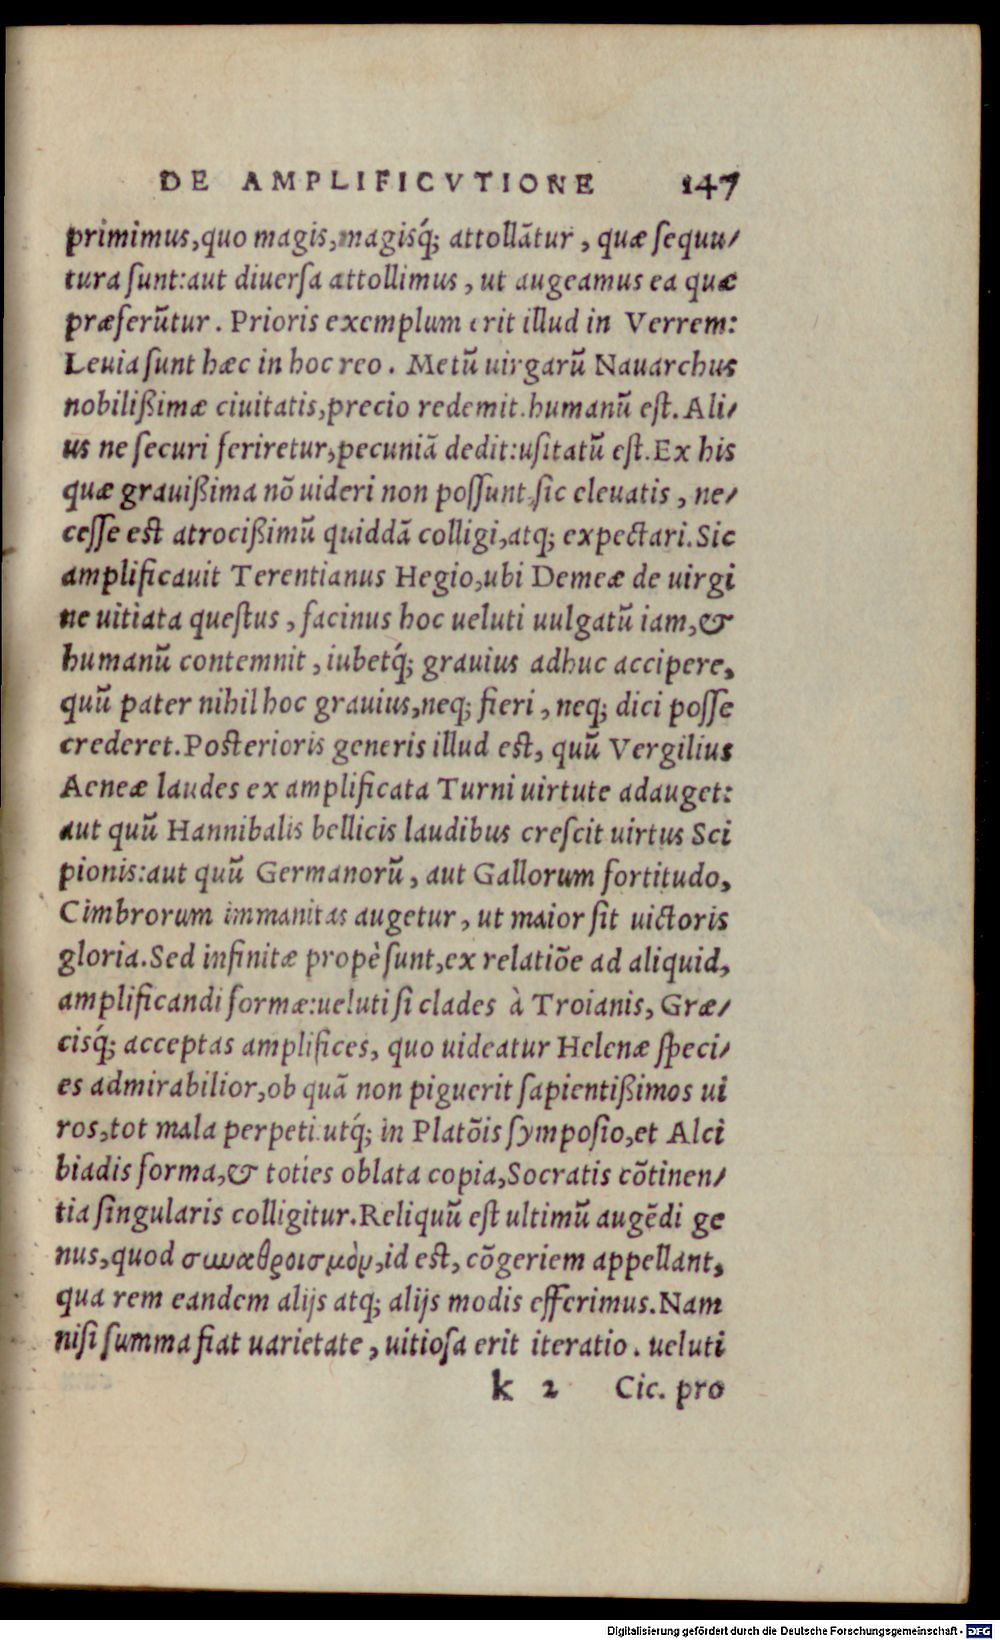 DE AMPLIFICVTIONE 147
primimus, quo magis, magisq́; attollãtur, quæ ſequu/
tura ſunt: aut diuerſa attollimus, ut augeamus ea quæ
præferũtur. Prioris exemplum erit illud in Verrem:
Leuia ſunt hæc in hoc reo. Metũ uirgarũ Nauarchus
nobilißimæ ciuitatis, precio redemit. humanũ eſt. Ali/
us ne ſecuri feriretur, pecuniã dedit: uſitatũ eſt. Ex his
quæ grauißima nõ uideri non poſſunt, ſic eleuatis, ne/
ceſſe eſt atrocißimũ quiddã colligi, atq; expectari. Sic
amplificauit Terentianus Hegio, ubi Demeæ de uirgi
ne uitiata queſtus, facinus hoc ueluti uulgatũ iam, &
humanũ contemnit, iubetq́; grauius adhuc accipere,
quũ pater nihil hoc grauius, neq; fieri, neq; dici poſſe
crederet. Poſterioris generis illud eſt, quũ Vergilius
Aeneæ laudes ex amplificata Turni uirtute adauget:
aut quũ Hannibalis bellicis laudibus creſcit uirtus Sci
pionis: aut quũ Germanorũ, aut Gallorum fortitudo,
Cimbrorum immanitas augetur, ut maior ſit uictoris
gloria. Sed infinitæ propè ſunt, ex relatiõe ad aliquid,
amplificandi formæ: ueluti ſi clades à Troianis, Græ/
cisq́; acceptas amplifices, quo uideatur Helenæ ſpeci/
es admirabilior, ob quã non piguerit ſapientißimos ui
ros, tot mala perpeti. utq́; in Platõis ſympoſio, et Alci
biadis forma, & toties oblata copia, Socratis cõtinen/
tia ſingularis colligitur. Reliquũ eſt ultimũ augẽdi ge
nus, quod σωαθροισμὸν, id eſt, cõgeriem appellant,
qua rem eandem alijs atq; alijs modis efferimus. Nam
niſi ſumma fiat uarietate, uitioſa erit iteratio. ueluti
k 2 Cic. pro
Digitalisierung gefördert durch die Deutsche Forschungsgemeinschaft - DFG